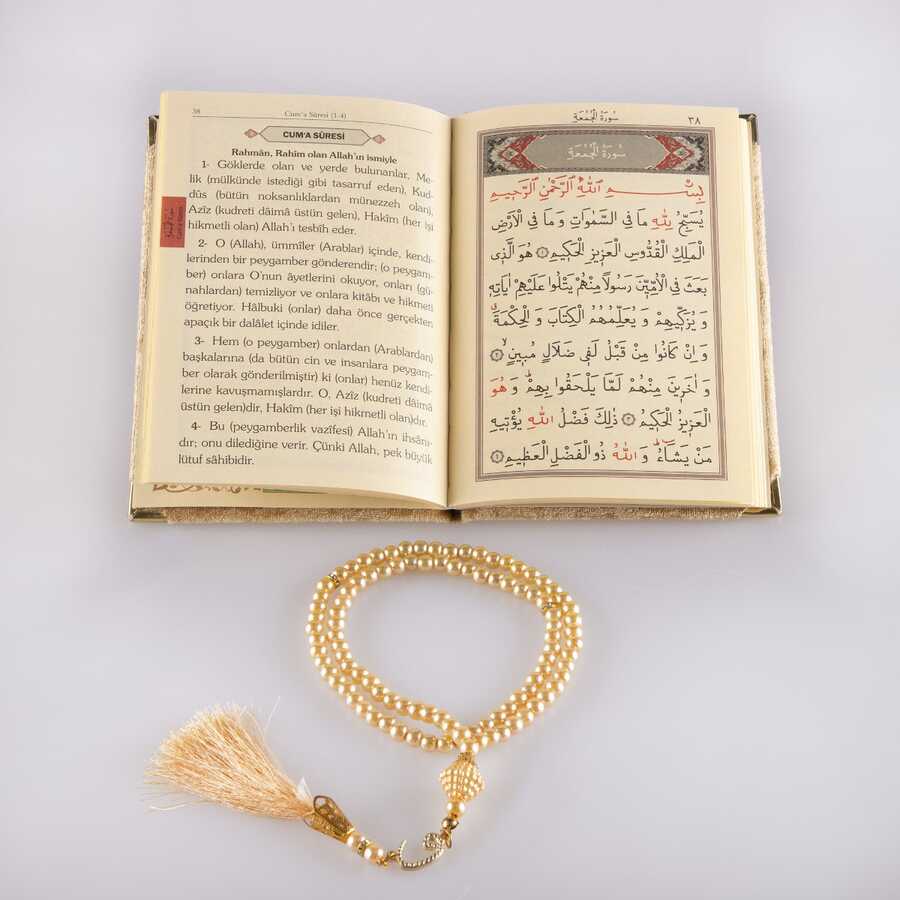 38
Cum'a Sûresi (1-4)
CUM'A SÛRESİ
Rahmân, Rahîm olan Allah'ın ismiyle
1- Göklerde olan ve yerde bulunanlar, Me-
lik (mülkünde istediği gibi tasarruf eden), Kud-
dûs (bütün noksanlıklardan münezzeh olan),
Azîz (kudreti dâimâ üstün gelen), Hakîm (her işi
hikmetli olan) Allah'ı tesbîh eder.
2- O (Allah), ümmîler (Arablar) içinde, kendi-
lerinden bir peygamber gönderendir; (o peygam-
ber) onlara O'nun âyetlerini okuyor, onları (gü-
nahlardan) temizliyor ve onlara kitâbı ve hikmeti
öğretiyor. Hâlbuki (onlar) daha önce gerçekten
apaçık bir dalâlet içinde idiler.
3- Hem (o peygamber) onlardan (Arablardan)
başkalarına (da bütün cin ve insanlara peygam-
ber olarak gönderilmiştir) ki (onlar) henüz kendi-
lerine kavuşmamışlardır. O, Azîz (kudreti dâimâ
üstün gelen)dir, Hakîm (her işi hikmetli olan)dır.
4- Bu (peygamberlik vazîfesi) Allah'ın ihsânı-
dır; onu dilediğine verir. Çünki Allah, pek büyük
lütuf sâhibidir.
سُورَةُ الْجُمُعَةِ
٣٨
سُورَةُ الْجُمُعَةِ
بِسْــــمِ اللهِ الرَّحْمٰنِ الرَّحِيــمِ
يُسَبِّحُ لِلّٰهِ مَا فِي السَّمٰوَاتِ وَ مَا فِي الْاَرْضِ
الْمَلِكِ الْقُدُّوسِ الْعَزِيزِ الْحَكِيمِ ﴿١﴾ هُوَ الَّذِي
بَعَثَ فِي الْاُمِّيّٖنَ رَسُولاً مِنْهُمْ يَتْلُوا عَلَيْهِمْ اٰيَاتِهٖ
وَ يُزَكِّيهِمْ وَ يُعَلِّمُهُمُ الْكِتَابَ وَ الْحِكْمَةَ
وَ اِنْ كَانُوا مِنْ قَبْلُ لَفِي ضَلَالٍ مُبِينٍ ﴿٢﴾
وَ اٰخَرِينَ مِنْهُمْ لَمَّا يَلْحَقُوا بِهِمْ وَ هُوَ
الْعَزِيزُ الْحَكِيمُ ﴿٣﴾ ذٰلِكَ فَضْلُ اللّٰهِ يُؤْتِيهِ
مَنْ يَشَاءُ وَ اللّٰهُ ذُو الْفَضْلِ الْعَظِيمِ ﴿٤﴾